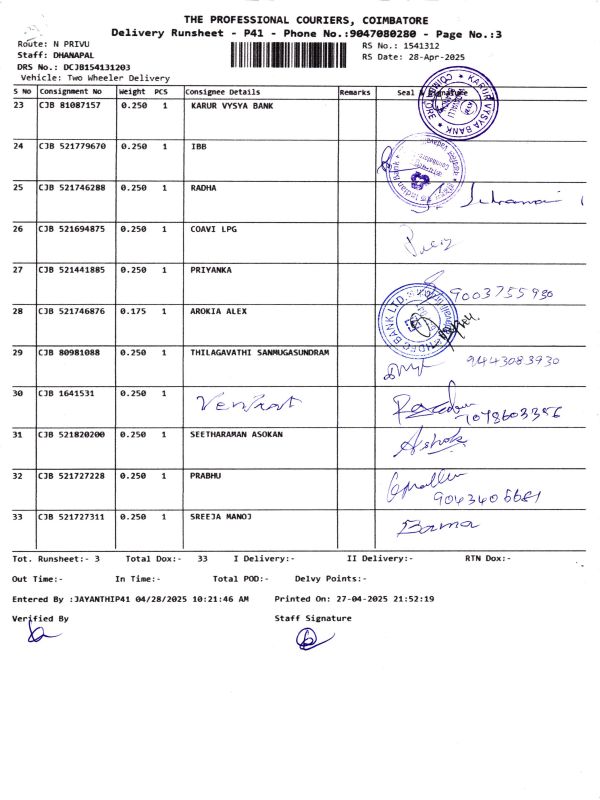 THE PROFESSIONAL COURIERS, COIMBATORE
Delivery Runsheet - P41 - Phone No.:9047080280 - Page No.:3
Route: N PRIVU
RS No.: 1541312
Staff: DHANAPAL
RS Date: 28-Apr-2025
DRS No.: DCJB154131203
Vehicle: Two Wheeler Delivery
S No Consignment No Weight PCS Consignee Details Remarks Seal & Signature
23 CJB 81087157 0.250 1 KARUR VYSYA BANK
KARUR VYSYA BANK
24 CJB 521779670 0.250 1 IBB
Indian Bank
25 CJB 521746288 0.250 1 RADHA
26 CJB 521694875 0.250 1 COAVI LPG
27 CJB 521441885 0.250 1 PRIYANKA
9003755930
28 CJB 521746876 0.175 1 AROKIA ALEX
BANK LTD.
29 CJB 80981088 0.250 1 THILAGAVATHI SANMUGASUNDRAM
9443083930
30 CJB 1641531 0.250 1 Venkat
31 CJB 521820200 0.250 1 SEETHARAMAN ASOKAN
Ashok
32 CJB 521727228 0.250 1 PRABHU
33 CJB 521727311 0.250 1 SREEJA MANOJ
Bama
Tot. Runsheet:- 3 Total Dox:- 33 I Delivery:- II Delivery:- RTN Dox:-
Out Time:- In Time:- Total POD:- Delvy Points:-
Entered By :JAYANTHIP41 04/28/2025 10:21:46 AM Printed On: 27-04-2025 21:52:19
Verified By Staff Signature